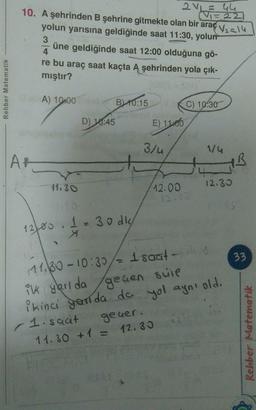 2V₁ = 44
V₁ = 22
V₂ = 14
10. A şehrinden B şehrine gitmekte olan bir araç
yolun yarısına geldiğinde saat 11:30, yolun
3/4 üne geldiğinde saat 12:00 olduğuna gö-
re bu araç saat kaçta A şehrinden yola çık-
mıştır?
A) 10:00 B) 10:15 C) 10:30
D) 10:45 E) 11:00
3/4 1/4
A B
11.30 12.00 12.30
= 30 dk
11.30 - 10:30 = 1 saat
ilk yarıda geçen süre
ikinci yarıda da yol aynı old.
1. saat geçer.
11.30 + 1 = 12.30
33
Rehber Matematik
Rehber Matematik